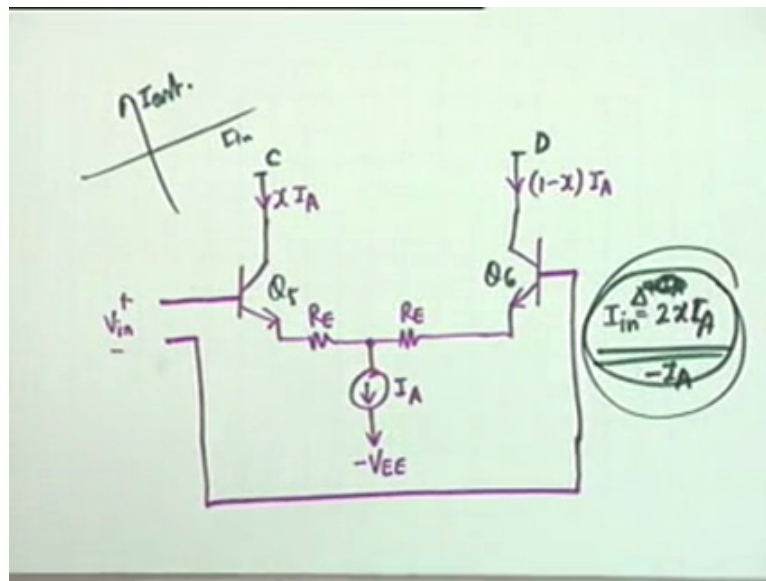 Iout.
Iin
C
D
xIA
(1-x) IA
Q5
Q6
+
Vin
-
RE
RE
IA
-VEE
Iin ≜ 2xIA
-IA